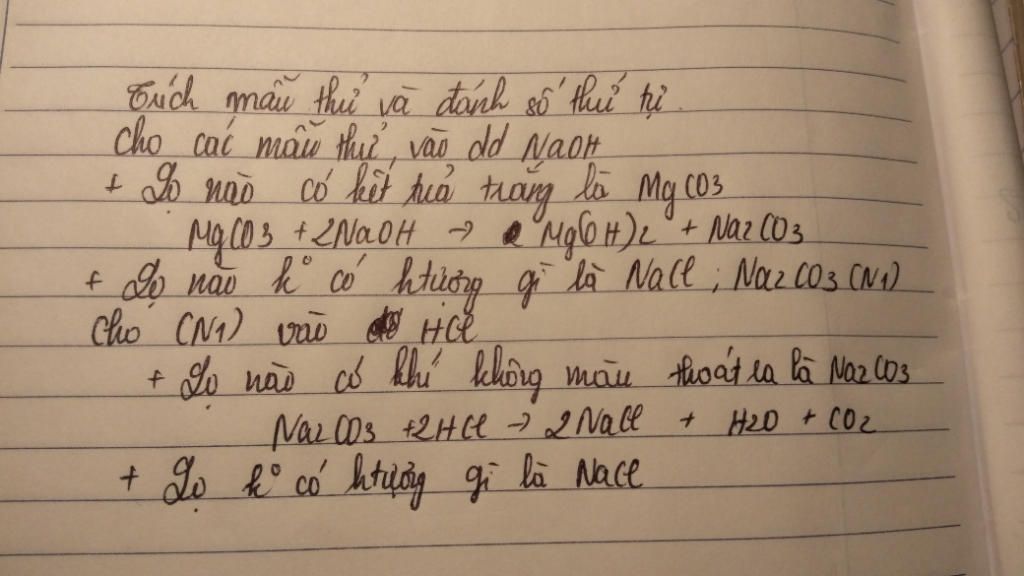 Trích mẫu thử và đánh số thứ tự.
Cho các mẫu thử vào dd NaOH
+ Lọ nào có kết tuả trắng là MgCO3
MgCO3 + 2NaOH → Mg(OH)2 + Na2CO3
+ Lọ nào k° có htượng gì là NaCl ; Na2CO3 (N1)
Cho (N1) vào HCl
+ Lọ nào có khí không màu thoát ra là Na2CO3
Na2CO3 +2HCl → 2NaCl + H2O + CO2
+ Lọ k° có htượng gì là NaCl